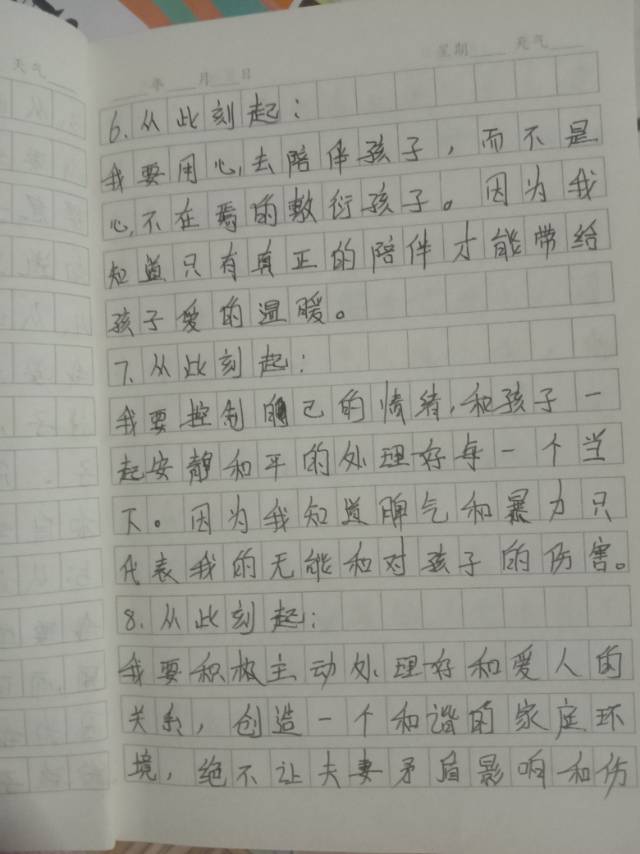 天气
年 月 日 星期 天气
6.从此刻起：
我要用心去陪伴孩子，而不是
心不在焉的敷衍孩子。因为我
知道只有真正的陪伴才能带给
孩子爱的温暖。
7.从此刻起：
我要控制自己的情绪，和孩子一
起安静和平的处理好每一个当
下。因为我知道脾气和暴力只
代表我的无能和对孩子的伤害。
8.从此刻起：
我要积极主动处理好和爱人的
关系，创造一个和谐的家庭环
境，绝不让夫妻矛盾影响和伤